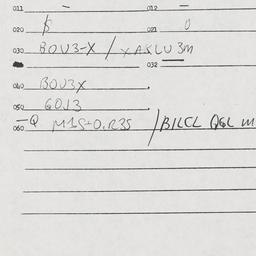 011 - 012 -
020 $ 021 0
030 BOV3-X / XASLU 3M
032
040 BOV3X
050 6013
060 -Q M1S-0.R3S / BILCL AGL M